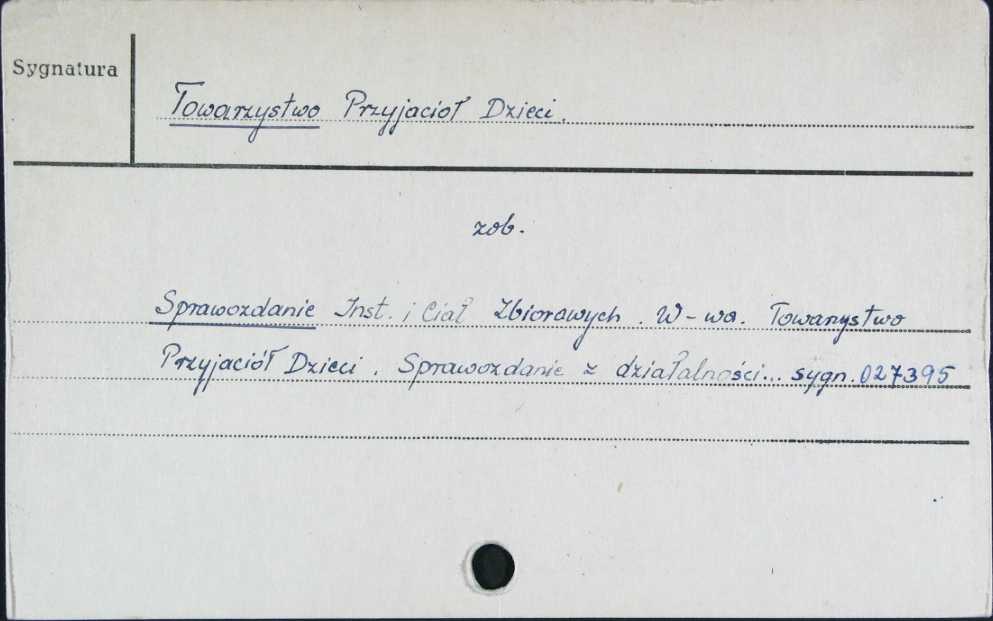 Sygnatura
Towarzystwo Przyjaciół Dzieci.
zob.
Sprawozdanie Inst. i Ciał Zbiorowych. W-wa. Towarzystwo
Przyjaciół Dzieci. Sprawozdanie z działalności... sygn. 027395